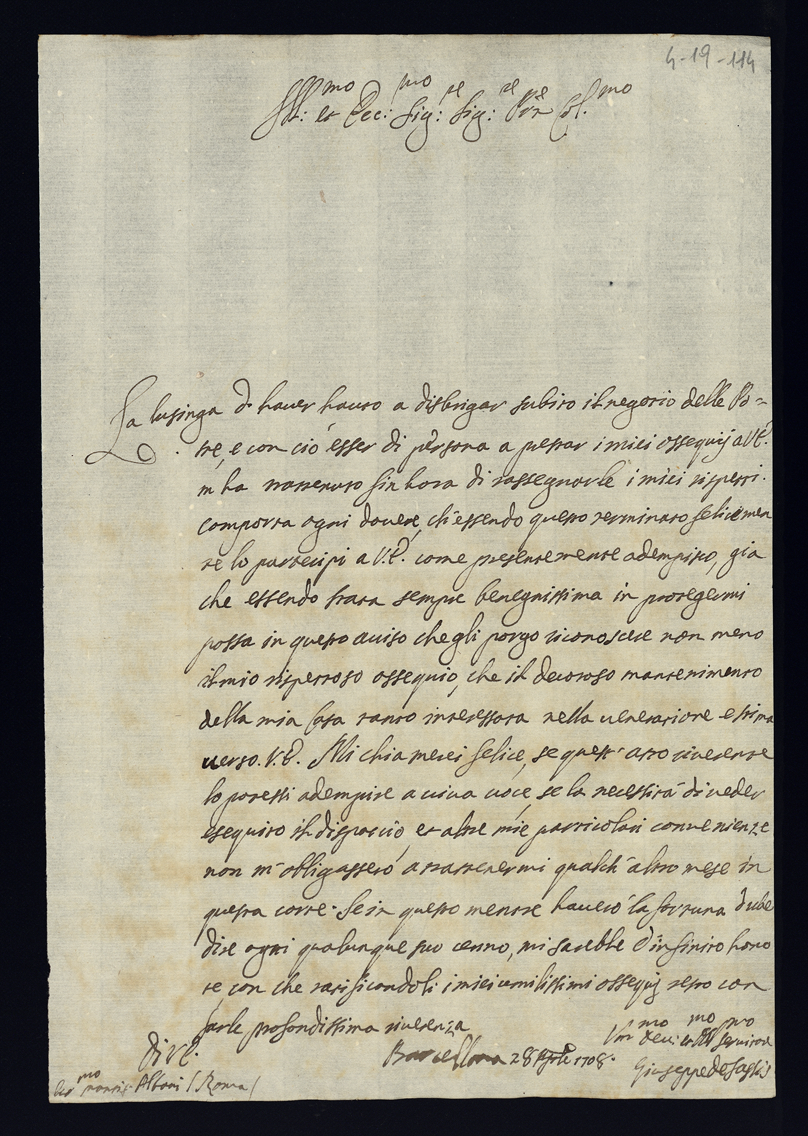 4-19-114
Ill:mo et Ecc:mo Sig:re Sig:re Pron Col.mo
La lusinga d'haver hauto a disbrigar subito il negotio delle Po=
ste, e con ciò esser di persona a prestar i miei ossequij a V.E.
m'ha trattenuto sin hora di rassegnarle i miei rispetti.
comporta ogni dovere, ch'essendo questo terminato felicemen
te lo partecipi a V.E. come presentemente adempisco, già
che essendo stata sempre benegnissima in protegermi
possa in questo aviso che gli porgo riconoscere non meno
il mio rispettoso ossequio, che il decoroso mantenimento
della mia Casa tanto interessata nella veneratione e stima
verso V.E. Mi chiamerei felice, se quest'atto riverente
lo potessi adempire a viva voce, se la necessità di veder
esequito il dispaccio, et altre mie particolari convenienze
non m'obligassero a trattenermi qualch'altro mese in
questa corte. Se in questo mentre haverò la fortuna d'ube
dire ogni qualunque suo cenno, mi sarebbe d'infinito hono
re, con che ratificandoli i miei umilissimi ossequij resto con
farle profondissima riverenza
Di V.E.
Barcellona 28 1708.
servitore
Giuseppe de
Albani (Roma)